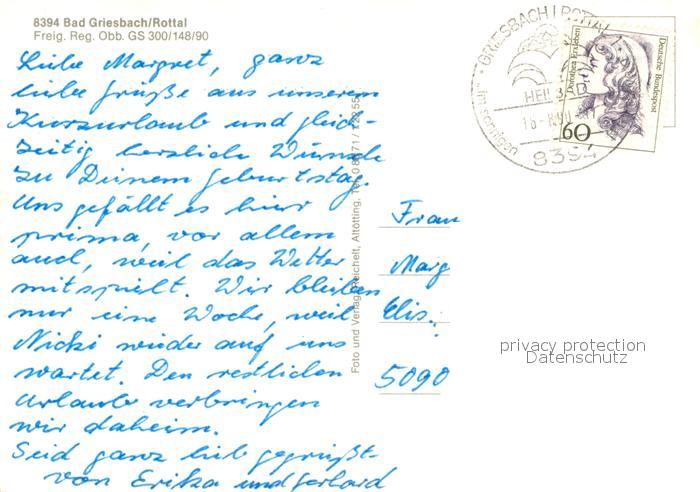 8394 Bad Griesbach/Rottal
Freig. Reg. Obb. GS 300/148/90
Liebe Margret, ganz
liebe Grüße aus unserem
Kurzurlaub und gleich-
zeitig herzliche Wünsche
zu Deinem Geburtstag.
Uns gefällt es hier
prima, vor allem
auch, weil das Wetter
mitspielt. Wir bleiben
nur eine Woche, weil
Nicki wieder auf uns
wartet. Den restlichen
Urlaub verbringen
wir daheim.
Seid ganz lieb gegrüßt
von Erika und Gerhard
Foto und Verlag Reichelt, Altötting, Tel.
Frau
Marg
Elis.
5090
GRIESBACH I ROTTAL
HEILBAD
8394
Deutsche Bundespost
60
privacy protection
Datenschutz